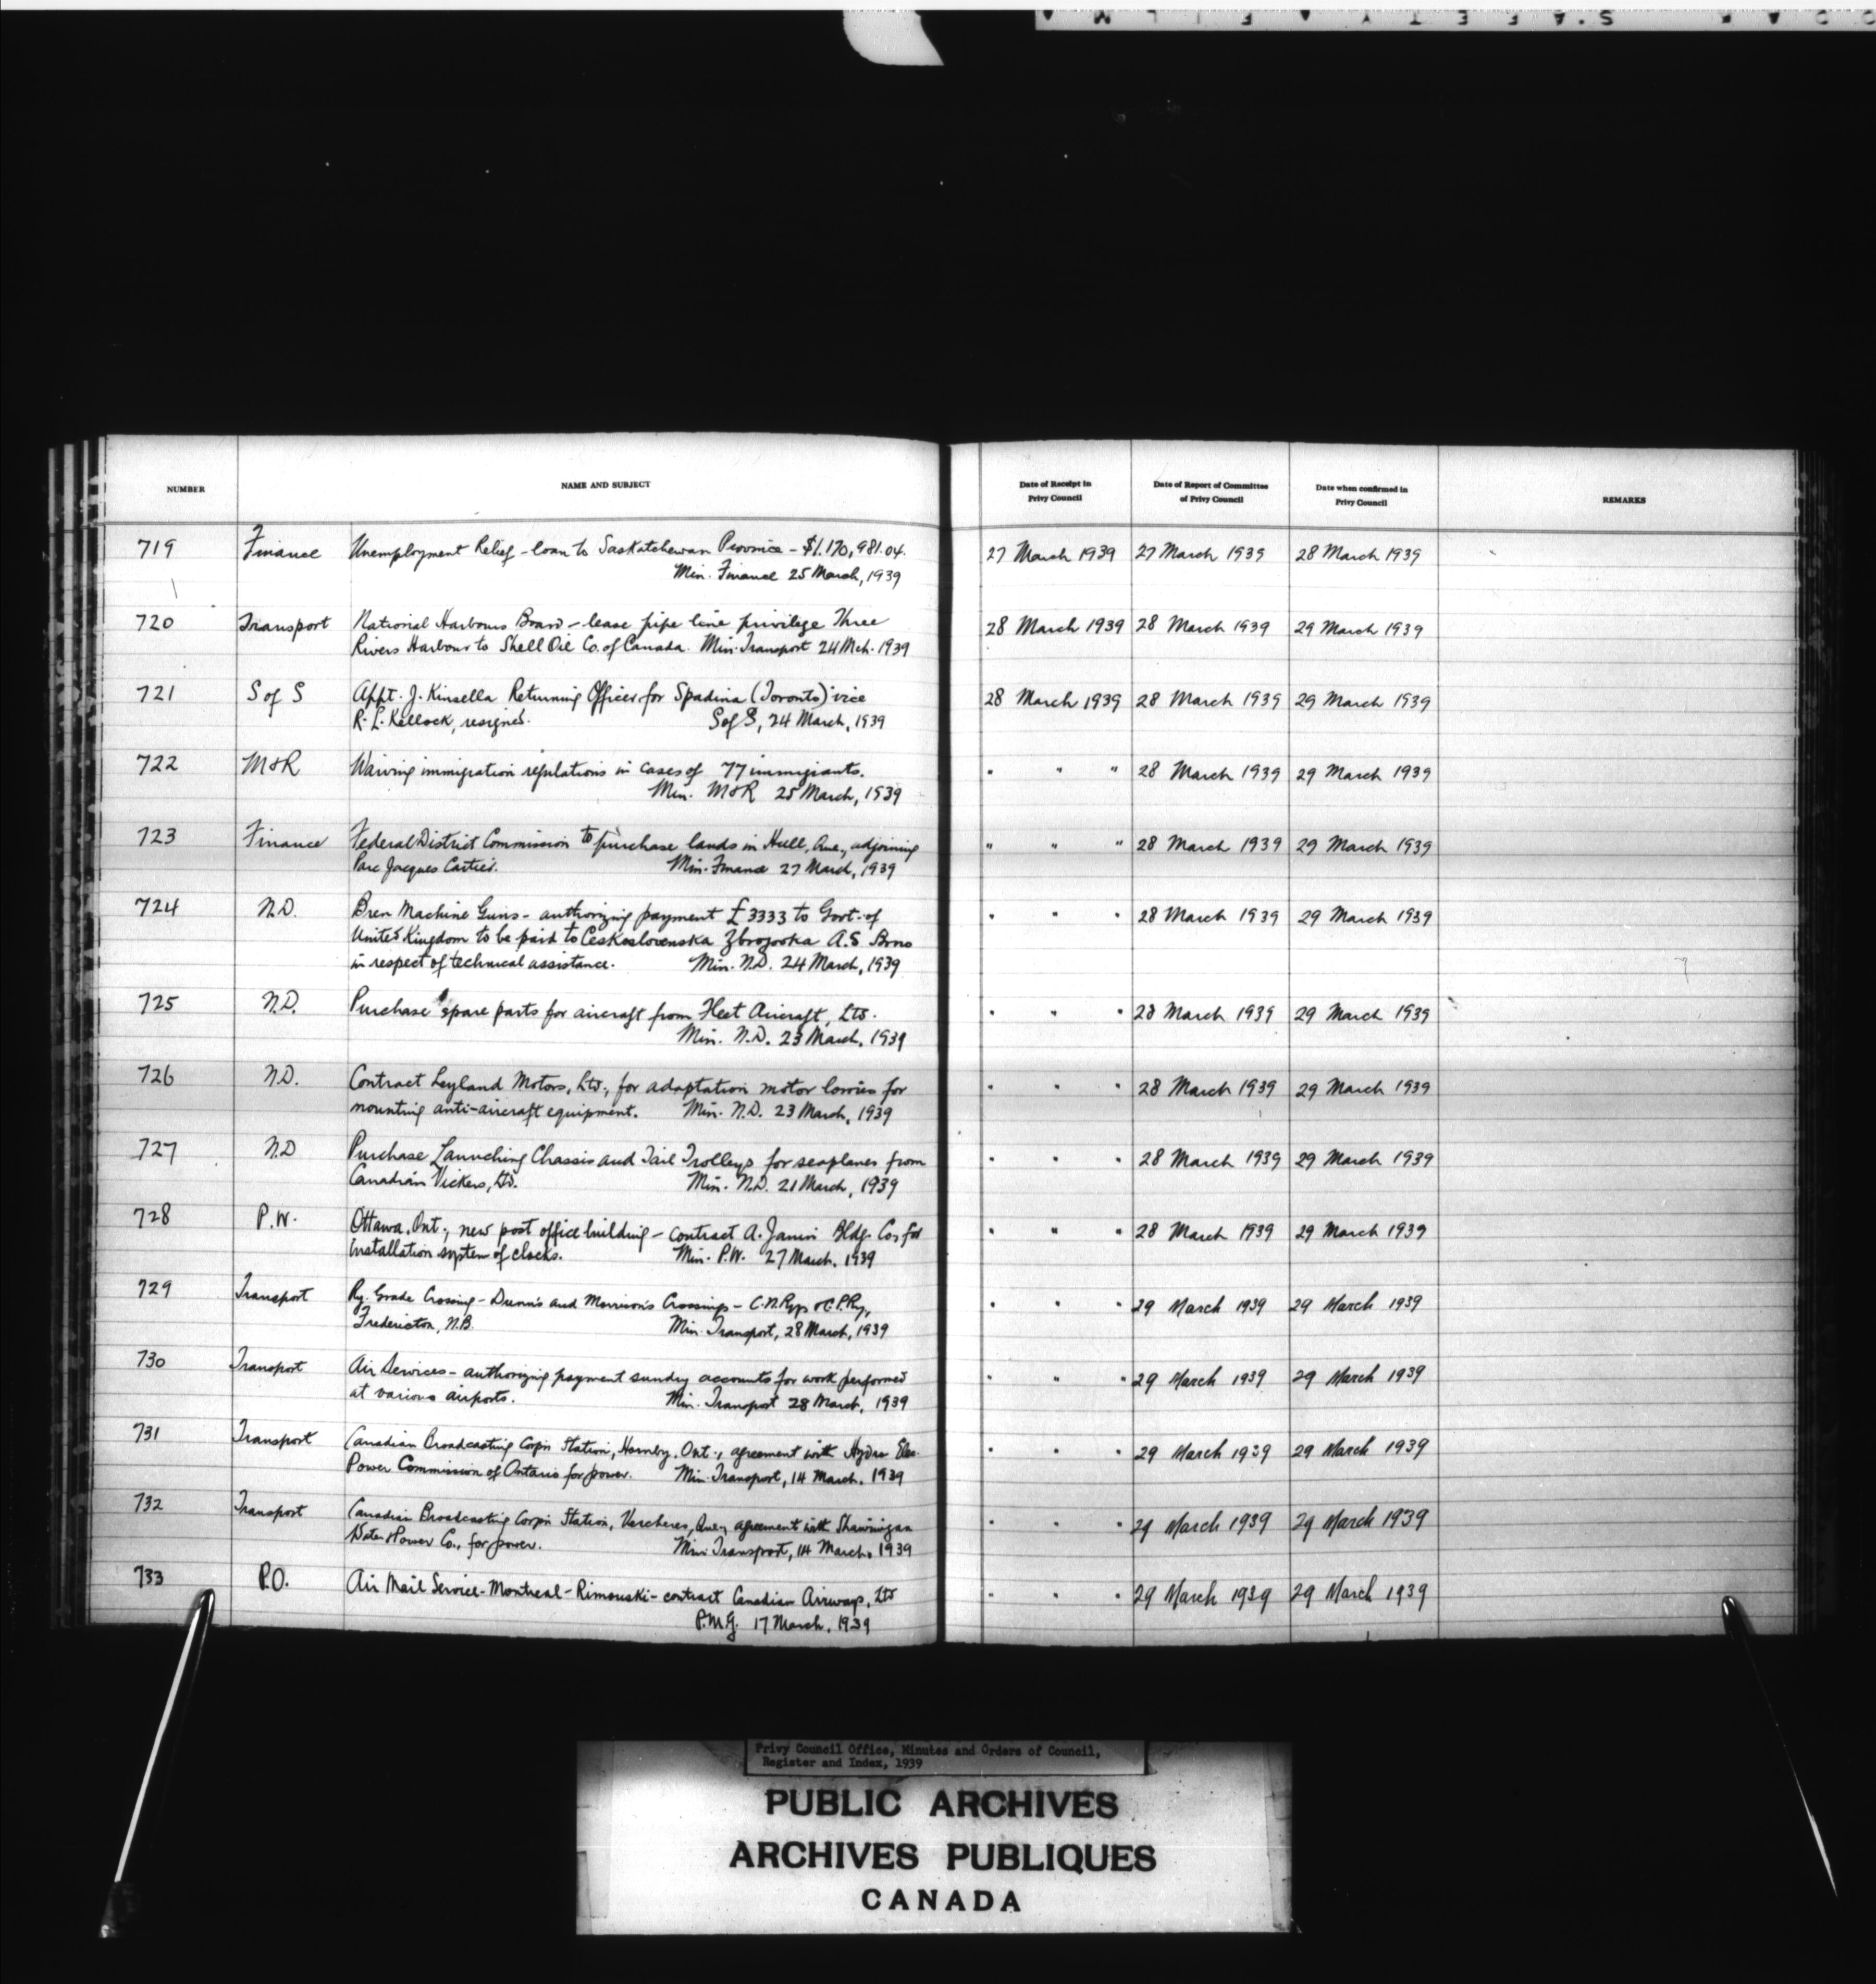 SAFETY FILM
NUMBER NAME AND SUBJECT Date of Receipt in Privy Council Date of Report of Committee of Privy Council Date when confirmed in Privy Council REMARKS
719 Finance Unemployment Relief - loan to Saskatchewan Province - $1,170,981.04. 27 March 1939 27 March 1939 28 March 1939
Min. Finance 25 March, 1939
720 Transport National Harbours Board - lease pipe line privilege Three 28 March 1939 28 March 1939 29 March 1939
Rivers Harbour to Shell Oil Co. of Canada. Min. Transport 24 Mch. 1939
721 S of S Appt. J. Kinsella Returning Officer for Spadina (Toronto) vice 28 March 1939 28 March 1939 29 March 1939
R. L. Kellock, resigned. S of S, 24 March, 1939
722 M&R Waiving immigration regulations in cases of 77 immigrants. " " " 28 March 1939 29 March 1939
Min. M&R 25 March, 1939
723 Finance Federal District Commission to purchase lands in Hull, Que., adjoining " " " 28 March 1939 29 March 1939
Parc Jacques Cartier. Min. Finance 27 March, 1939
724 N.D. Bren Machine Guns - authorizing payment £3333 to Govt. of " " " 28 March 1939 29 March 1939
United Kingdom to be paid to Ceskoslovenska Zbrojovka A.S Brno
in respect of technical assistance. Min. N.D. 24 March, 1939
725 N.D. Purchase spare parts for aircraft from Fleet Aircraft, Ltd. " " " 28 March 1939 29 March 1939
Min. N.D. 23 March, 1939
726 N.D. Contract Leyland Motors, Ltd., for adaptation motor lorries for " " " 28 March 1939 29 March 1939
mounting anti-aircraft equipment. Min. N.D. 23 March, 1939
727 N.D Purchase Launching Chassis and Tail Trolleys for seaplanes from " " " 28 March 1939 29 March 1939
Canadian Vickers, Ltd. Min. N.D. 21 March, 1939
728 P.W. Ottawa, Ont., new post office building - contract A. Janin Bldg. Co, for " " " 28 March 1939 29 March 1939
installation system of clocks. Min. P.W. 27 March, 1939
729 Transport Ry. Grade Crossing - and Morrison's Crossings - C.N.Rys & C.P.Ry, " " " 29 March 1939 29 March 1939
Fredericton, N.B. Min. Transport, 28 March, 1939
730 Transport Air Services - authorizing payment sundry accounts for work performed " " " 29 March 1939 29 March 1939
at various airports. Min. Transport 28 March, 1939
731 Transport Canadian Broadcasting Corp'n Station, Hornby, Ont., agreement with Hydro Elec. " " " 29 March 1939 29 March 1939
Power Commission of Ontario for power. Min. Transport, 14 March, 1939
732 Transport Canadian Broadcasting Corp'n Station, Vercheres, Que., agreement with Shawinigan " " " 29 March 1939 29 March 1939
Water & Power Co., for power. Min. Transport, 14 March, 1939
733 P.O. Air Mail Service - Montreal - Rimouski - contract Canadian Airways, Ltd " " " 29 March 1939 29 March 1939
P.M.G. 17 March, 1939
Privy Council Office, Minutes and Orders of Council,
Register and Index, 1939
PUBLIC ARCHIVES
ARCHIVES PUBLIQUES
CANADA